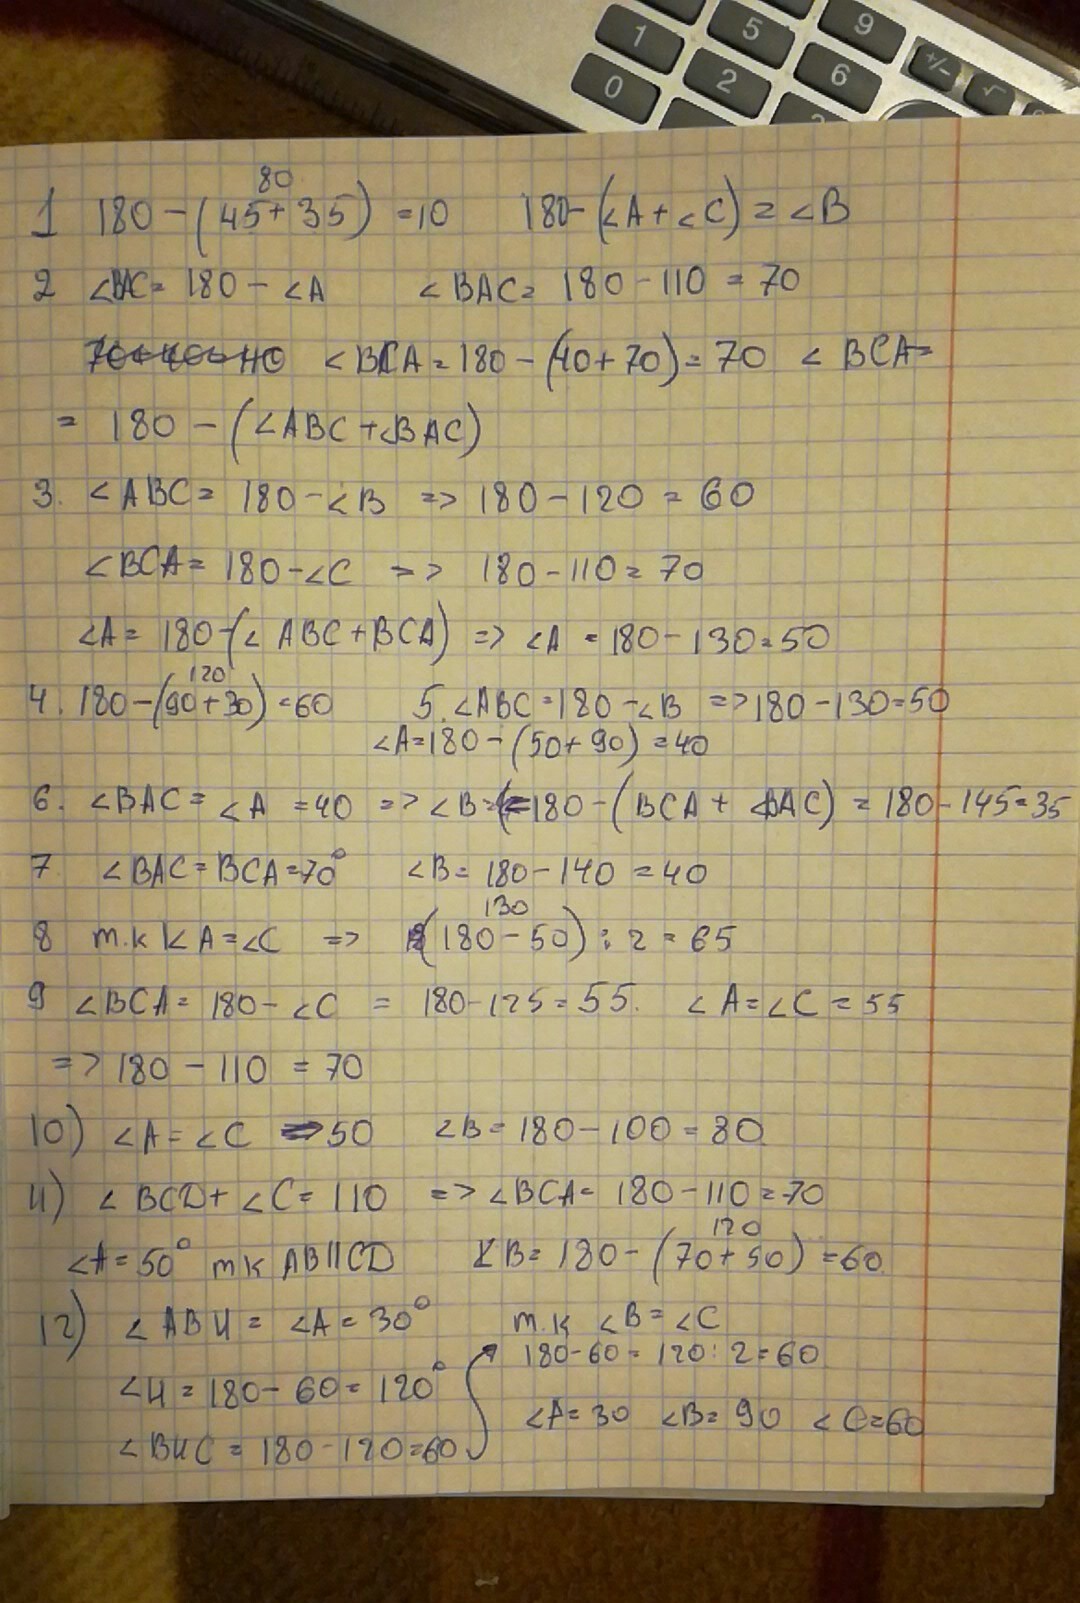 1 5 9
0 2 6 +/- √
80
1 180-(45+35)=10 180-(∠A+∠C)=∠B
2 ∠BAC=180-∠A ∠BAC=180-110=70
∠BCA=180-(40+70)=70 ∠BCA=
= 180-(∠ABC+∠BAC)
3. ∠ABC=180-∠B => 180-120=60
∠BCA=180-∠C => 180-110=70
∠A=180-(∠ABC+BCA) => ∠A=180-130=50
120
4. 180-(90+30)=60 5. ∠ABC=180-∠B => 180-130=50
∠A=180-(50+90)=40
6. ∠BAC=∠A=40 => ∠B=180-(BCA+∠BAC)=180-145=35
7 ∠BAC=BCA=70° ∠B=180-140=40
130
8 т.к ∠A=∠C => (180-50):2=65
9 ∠BCA=180-∠C = 180-125=55. ∠A=∠C=55
=> 180-110=70
10) ∠A=∠C =>50 ∠B=180-100=80
11) ∠BCD+∠C=110 => ∠BCA=180-110=70
120
∠A=50° тк AB||CD ∠B=180-(70+50)=60
12) ∠ABH=∠A=30° т.к ∠B=∠C
180-60=120:2=60
∠H=180-60=120°
∠A=30 ∠B=90 ∠C=60
∠BHC=180-120=60